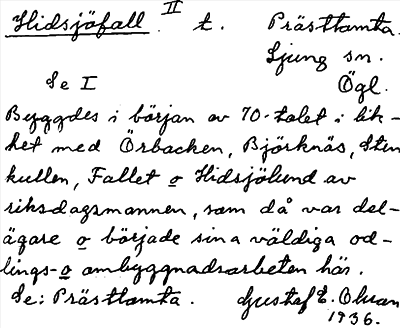 Hidsjöfall. II t. Prästtomta.
Ljung sn.
Se I Ögl.
Byggdes i början av 70-talet i lik-
het med Örbacken, Björknäs, Sten
kullen, Fallet o Hidsjölund av
riksdagsmannen, som då var del-
ägare o började sina väldiga od-
lings- o ombyggnadsarbeten här.
Se: Prästtomta. Gustaf E. Ohran
1936.